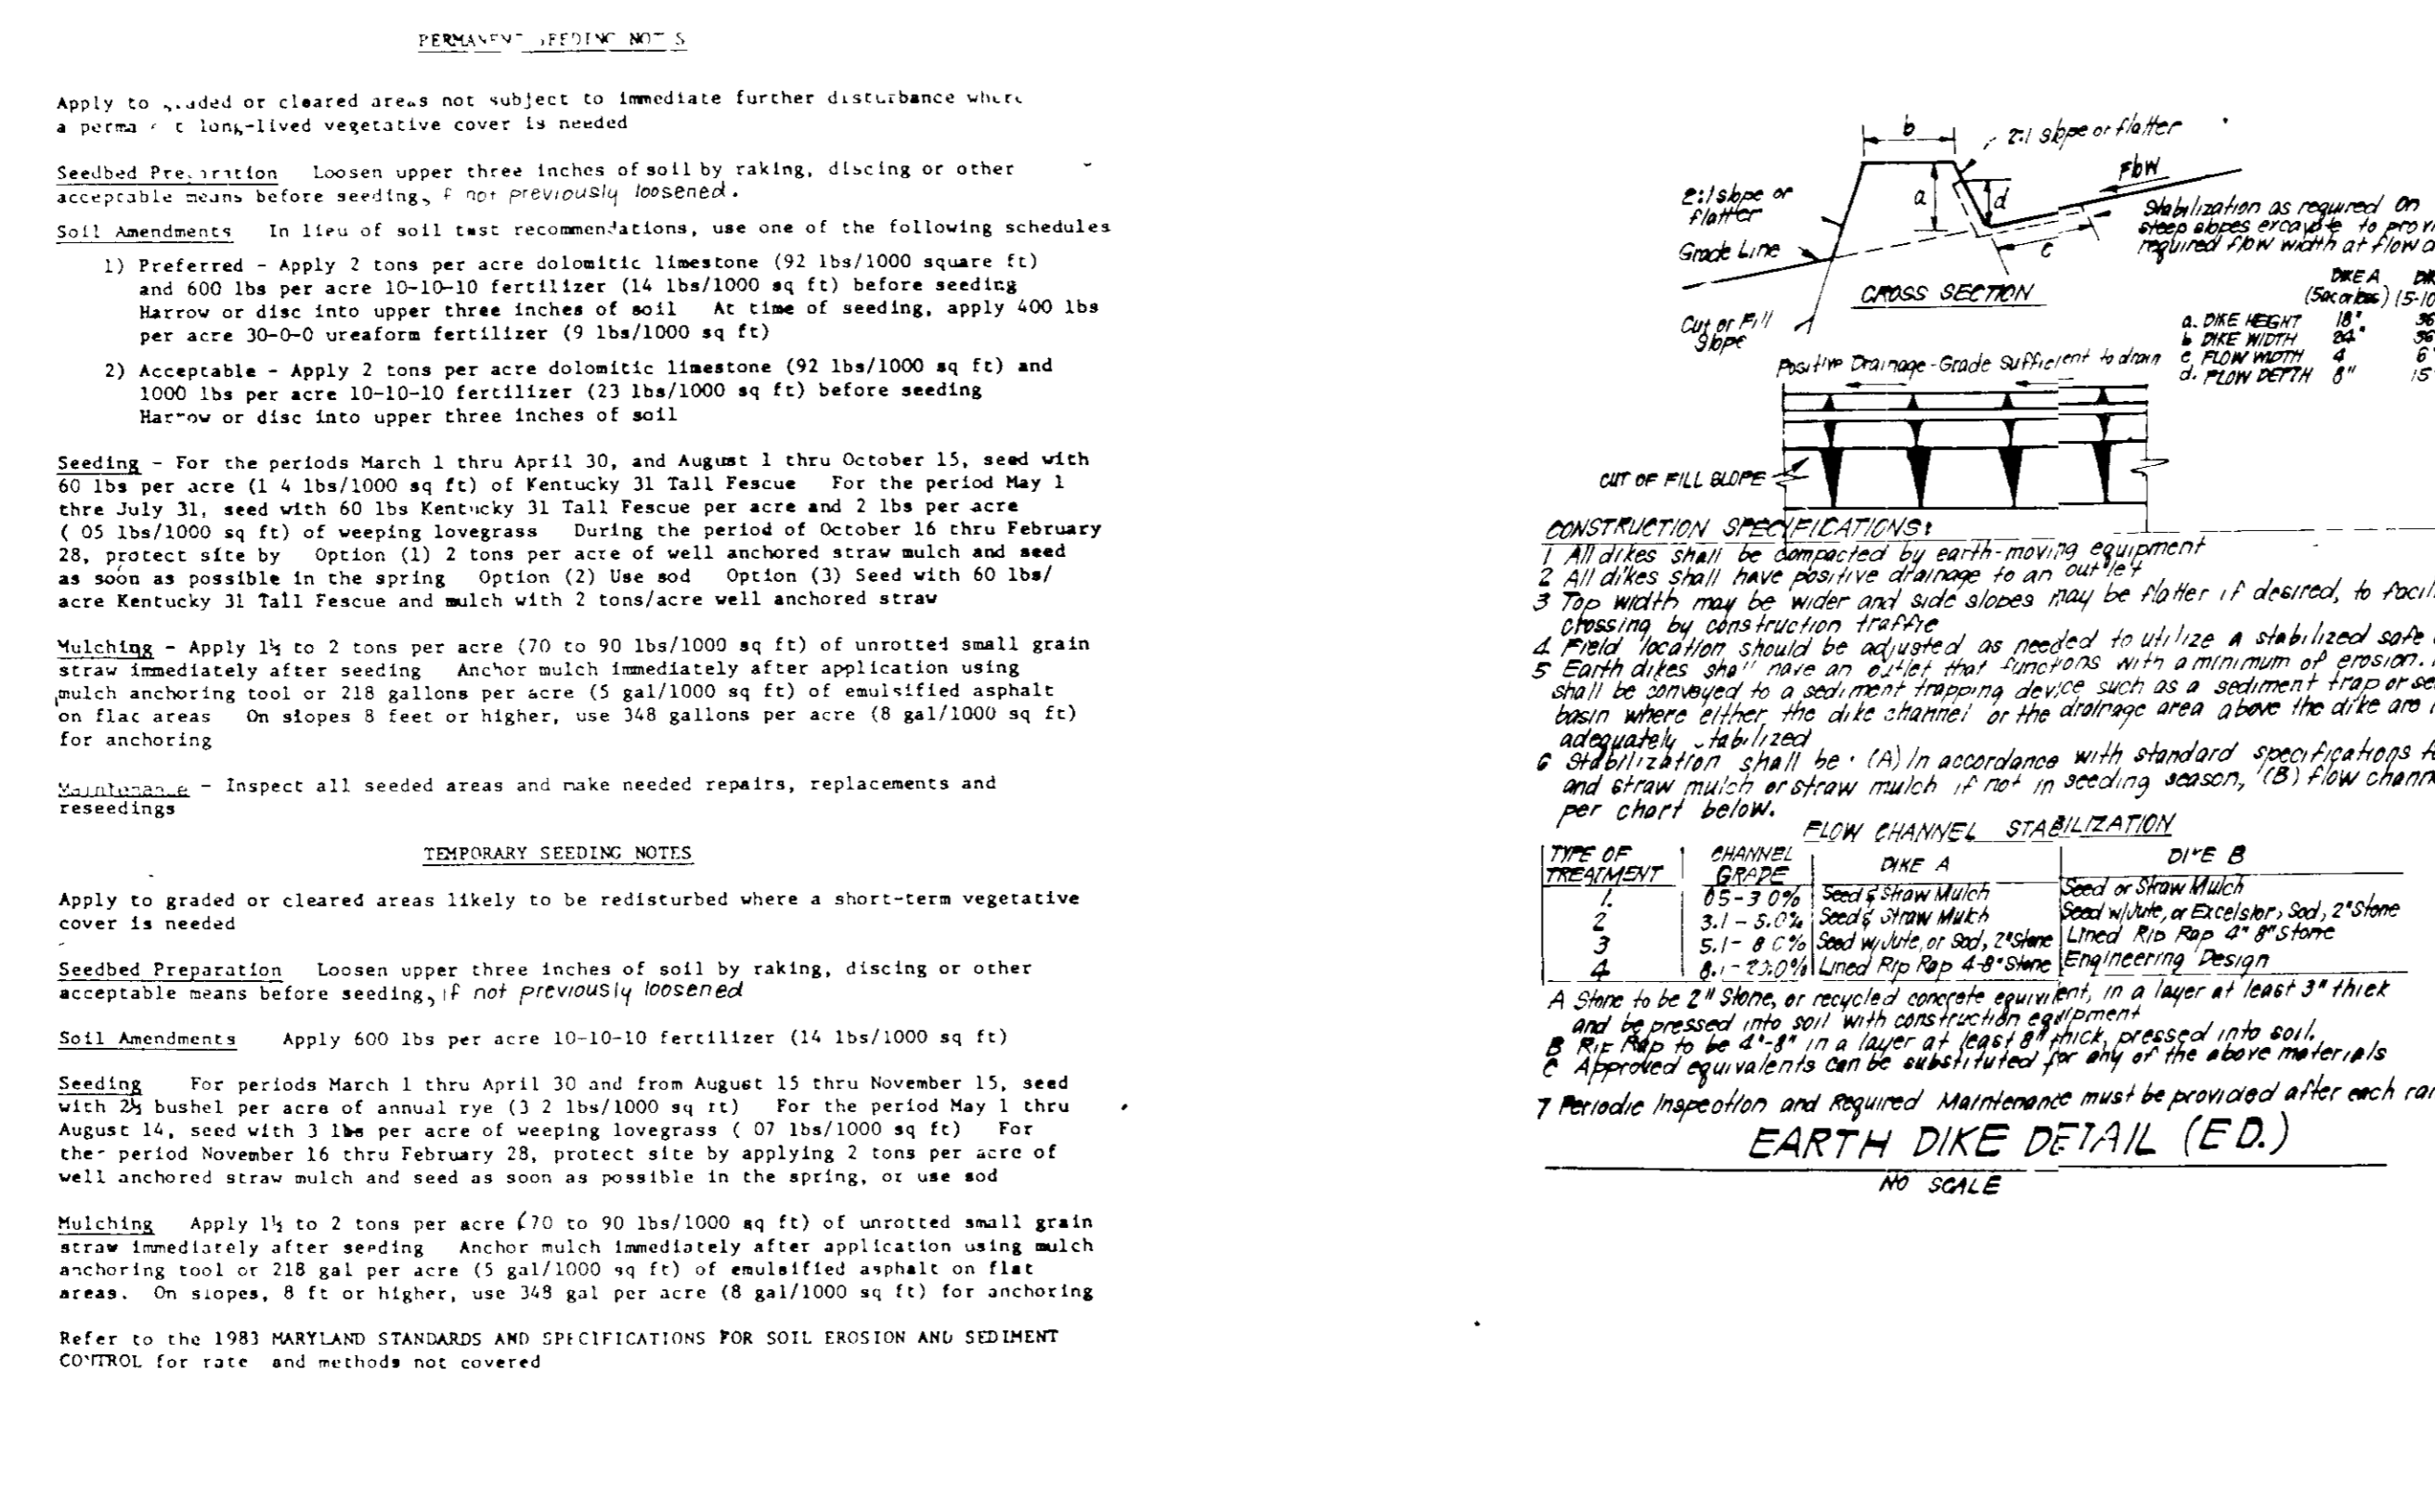 PERMANENT SEEDING NOTES
Apply to graded or cleared areas not subject to immediate further disturbance where
a long-lived vegetative cover is needed
Seedbed Preparation Loosen upper three inches of soil by raking, discing or other
acceptable means before seeding, if not previously loosened.
Soil Amendments In lieu of soil test recommendations, use one of the following schedules
1) Preferred - Apply 2 tons per acre dolomitic limestone (92 lbs/1000 square ft)
and 600 lbs per acre 10-10-10 fertilizer (14 lbs/1000 sq ft) before seeding
Harrow or disc into upper three inches of soil At time of seeding, apply 400 lbs
per acre 30-0-0 ureaform fertilizer (9 lbs/1000 sq ft)
2) Acceptable - Apply 2 tons per acre dolomitic limestone (92 lbs/1000 sq ft) and
1000 lbs per acre 10-10-10 fertilizer (23 lbs/1000 sq ft) before seeding
Harrow or disc into upper three inches of soil
Seeding - For the periods March 1 thru April 30, and August 1 thru October 15, seed with
60 lbs per acre (1 4 lbs/1000 sq ft) of Kentucky 31 Tall Fescue For the period May 1
thre July 31, seed with 60 lbs Kentucky 31 Tall Fescue per acre and 2 lbs per acre
( 05 lbs/1000 sq ft) of weeping lovegrass During the period of October 16 thru February
28, protect site by Option (1) 2 tons per acre of well anchored straw mulch and seed
as soon as possible in the spring Option (2) Use sod Option (3) Seed with 60 lbs/
acre Kentucky 31 Tall Fescue and mulch with 2 tons/acre well anchored straw
Mulching - Apply 1½ to 2 tons per acre (70 to 90 lbs/1000 sq ft) of unrotted small grain
straw immediately after seeding Anchor mulch immediately after application using
mulch anchoring tool or 218 gallons per acre (5 gal/1000 sq ft) of emulsified asphalt
on flat areas On slopes 8 feet or higher, use 348 gallons per acre (8 gal/1000 sq ft)
for anchoring
Maintenance - Inspect all seeded areas and make needed repairs, replacements and
reseedings
TEMPORARY SEEDING NOTES
Apply to graded or cleared areas likely to be redisturbed where a short-term vegetative
cover is needed
Seedbed Preparation Loosen upper three inches of soil by raking, discing or other
acceptable means before seeding, if not previously loosened
Soil Amendments Apply 600 lbs per acre 10-10-10 fertilizer (14 lbs/1000 sq ft)
Seeding For periods March 1 thru April 30 and from August 15 thru November 15, seed
with 2½ bushel per acre of annual rye (3 2 lbs/1000 sq ft) For the period May 1 thru
August 14, seed with 3 lbs per acre of weeping lovegrass ( 07 lbs/1000 sq ft) For
the period November 16 thru February 28, protect site by applying 2 tons per acre of
well anchored straw mulch and seed as soon as possible in the spring, or use sod
Mulching Apply 1½ to 2 tons per acre (70 to 90 lbs/1000 sq ft) of unrotted small grain
straw immediately after seeding Anchor mulch immediately after application using mulch
anchoring tool or 218 gal per acre (5 gal/1000 sq ft) of emulsified asphalt on flat
areas. On slopes, 8 ft or higher, use 348 gal per acre (8 gal/1000 sq ft) for anchoring
Refer to the 1983 MARYLAND STANDARDS AND SPECIFICATIONS FOR SOIL EROSION AND SEDIMENT
CONTROL for rate and methods not covered
b
2:1 slope or flatter
2:1 slope or
flatter
a
d
Flow
c
Grade Line
Stabilization as required on
steep slopes excavate to
required flow width at flow
CROSS SECTION
Cut or Fill
Slope
DIKE A
(5ac or less) (5-10
a. DIKE HEIGHT 18" 36
b DIKE WIDTH 24" 36
c FLOW WIDTH 4 6
d. FLOW DEPTH 8" 15
Positive Drainage-Grade Sufficient to drain
CUT OF FILL SLOPE
CONSTRUCTION SPECIFICATIONS:
1 All dikes shall be compacted by earth-moving equipment
2 All dikes shall have positive drainage to an outlet
3 Top width may be wider and side slopes may be flatter if desired, to
crossing by construction traffic
4 Field location should be adjusted as needed to utilize a stabilized safe
5 Earth dikes shall have an outlet that functions with a minimum of erosion.
shall be conveyed to a sediment trapping device such as a sediment trap or
basin where either the dike channel or the drainage area above the dike are
adequately stabilized
6 Stabilization shall be: (A) In accordance with standard specifications
and straw mulch or straw mulch if not in seeding season, (B) flow
per chart below.
FLOW CHANNEL STABILIZATION
TYPE OF TREATMENT CHANNEL GRADE DIKE A DIKE B
1. 05-3 0% Seed & Straw Mulch Seed or Straw Mulch
2 3.1-5.0% Seed & Straw Mulch Seed w/Jute, or Excelsior, Sod, 2" Stone
3 5.1-8 0% Seed w/Jute, or Sod, 2" Stone Lined Rip Rap 4" 8" Stone
4 8.1-20.0% Lined Rip Rap 4-8" Stone Engineering Design
A Stone to be 2" Stone, or recycled concrete equivilent, in a layer at least 3" thick
and be pressed into soil with construction equipment
B Rip Rap to be 4"-8" in a layer at least 8" thick, pressed into soil.
C Approved equivalents can be substituted for any of the above materials
7 Periodic Inspection and Required Maintenance must be provided after each
EARTH DIKE DETAIL (E D.)
NO SCALE